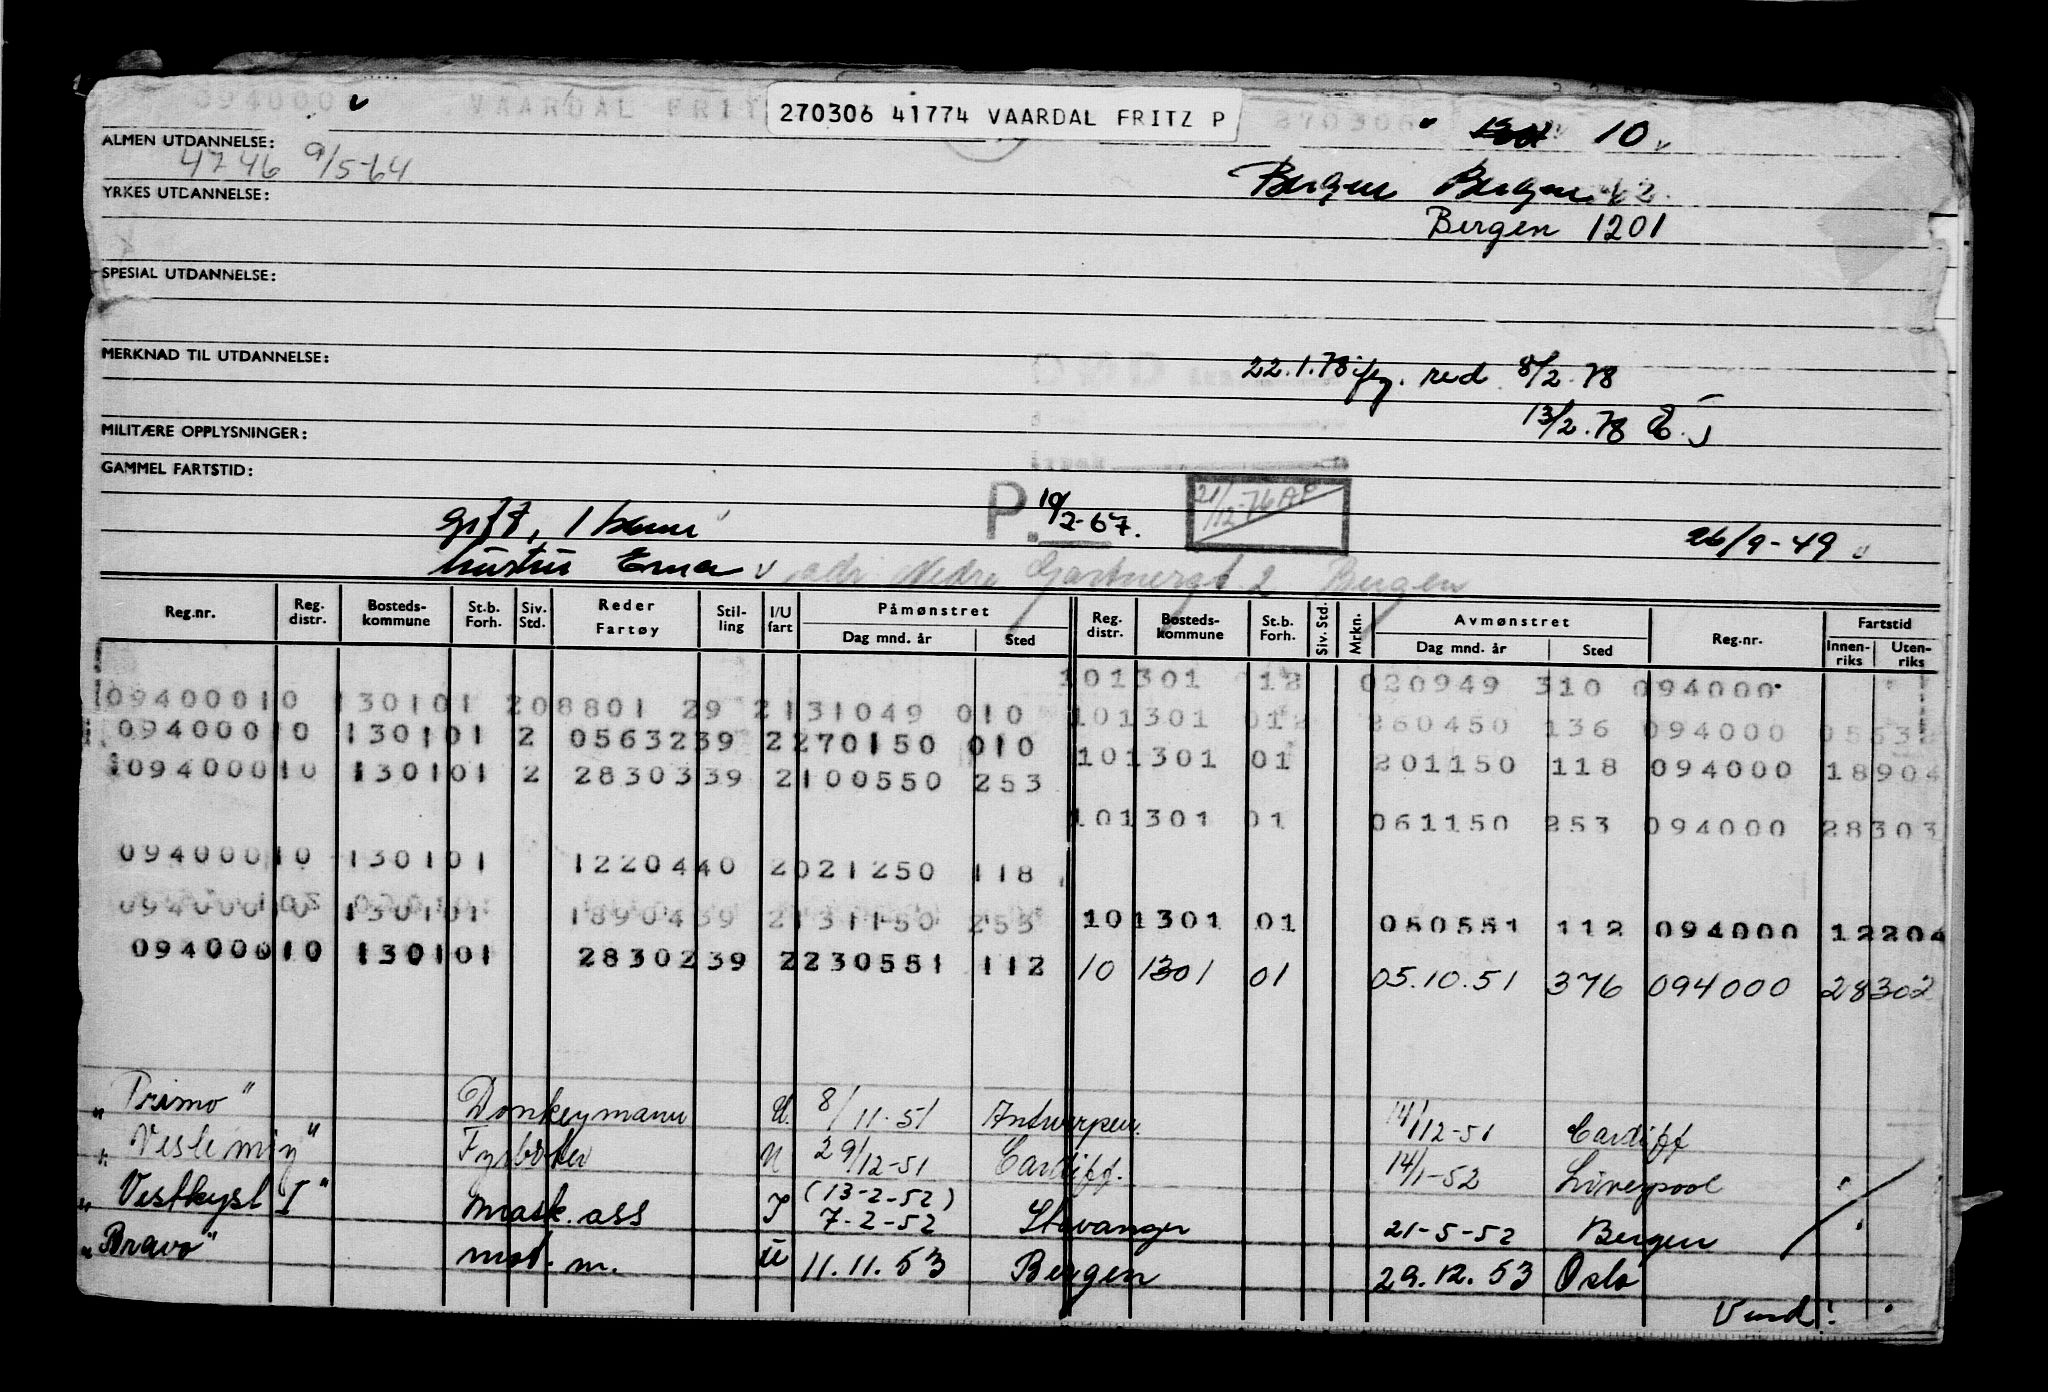 094000 VAARDAL FRIT 270306 41774 VAARDAL FRITZ P 270306 " 10
ALMEN UTDANNELSE:
4746 9/5-64
Bergen Bergen 2.
YRKES UTDANNELSE:
Bergen 1201
SPESIAL UTDANNELSE:
MERKNAD TIL UTDANNELSE:
DØD
22.1.78 red 8/2.78
13/2.78
MILITÆRE OPPLYSNINGER:
GAMMEL FARTSTID:
P. 10/2-67.
21/12-76 AP
gift, 1 barn
26/9-49
hustru Erna adr Nedre Gartnergt 2 Bergen
Reg.nr. Reg. distr. Bosteds- kommune St.b. Forh. Siv. Std. Reder Fartøy Stil- ling I/U fart Påmønstret Dag mnd. år Sted Reg. distr. Bosteds- kommune St.b. Forh. Siv. Std. Mrkn. Avmønstret Dag mnd. år Sted Reg.nr. Fartstid Innen- riks Uten- riks
101301 012 020949 310 094000
09400010 130101 208801 29 2131049 010 101301 012 260450 136 094000 05632
09400010 130101 2 0563239 2270150 010 101301 01 201150 118 094000 18904
09400010 130101 2 2830339 2100550 253
101301 01 061150 253 094000 28303
09400010 130101 1220440 2021250 118
09400010 130101 1890439 2131150 253 101301 01 050551 112 094000 12204
09400010 130101 2830239 2230551 112 10 1301 01 05.10.51 376 094000 28302
"Primo" Donkeymann U. 8/11-51 Antwerpen. 14/12-51 Cardiff
"Veslemøy" Fyrbøter U 29/12-51 Cardiff. 14/1-52 Liverpool "
"Vestkyst I" mask. ass I (13-2-52) 7-2-52 Stavanger 21-5-52 Bergen "
"Bravo" mot. m. U 11.11.53 Bergen 29.12.53 Oslo
Vend!